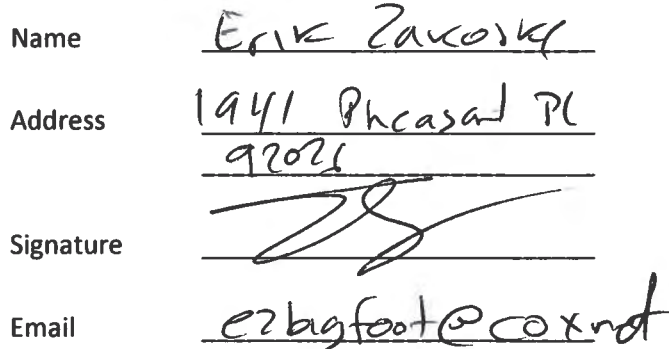 Name Erik Zakosky
Address 1941 Pheasant Pl
92021
Signature
Email ezbigfoot@cox.net